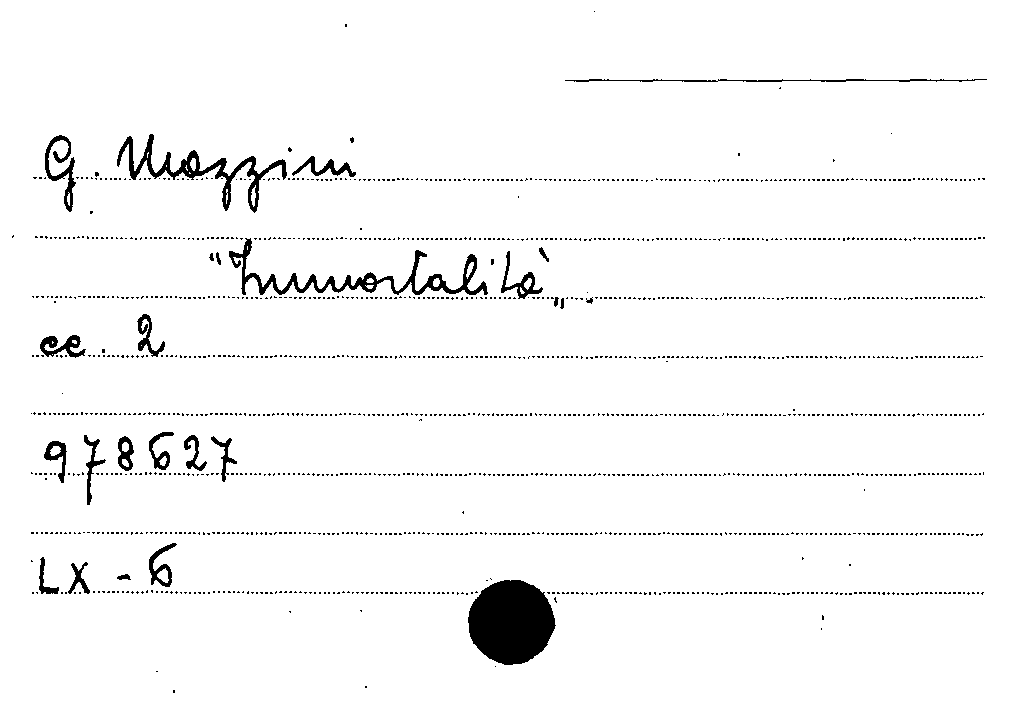 G. Mazzini
"Immortalità".
cc. 2
978627
LX - 6